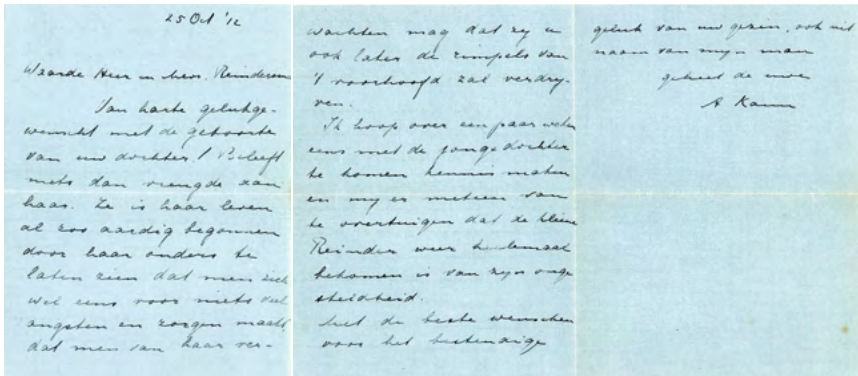 25 Oct '12
Waarde Heer en Mevr. Reindersma
Van harte gelukge-
wenscht met de geboorte
van uw dochter! Beleeft
niets dan vreugde aan
haar. Ze is haar leven
al zoo aardig begonnen
door haar ouders te
laten zien dat men zich
wel eens voor niets veel
angsten en zorgen maakt,
dat men van haar ver-
wachten mag dat zy u
ook later de rimpels van
't voorhoofd zal verdry-
ven.
Ik hoop over een paar weken
eens met de jonge dochter
te komen kennis maken
en my er meteen van
te overtuigen dat de kleine
Reinder weer heelemaal
bekomen is van zyn onge-
steldheid.
Met de beste wenschen
voor het bestendige
geluk van uw gezin, ook uit
naam van myn man
geheel de uwe
A Kamm